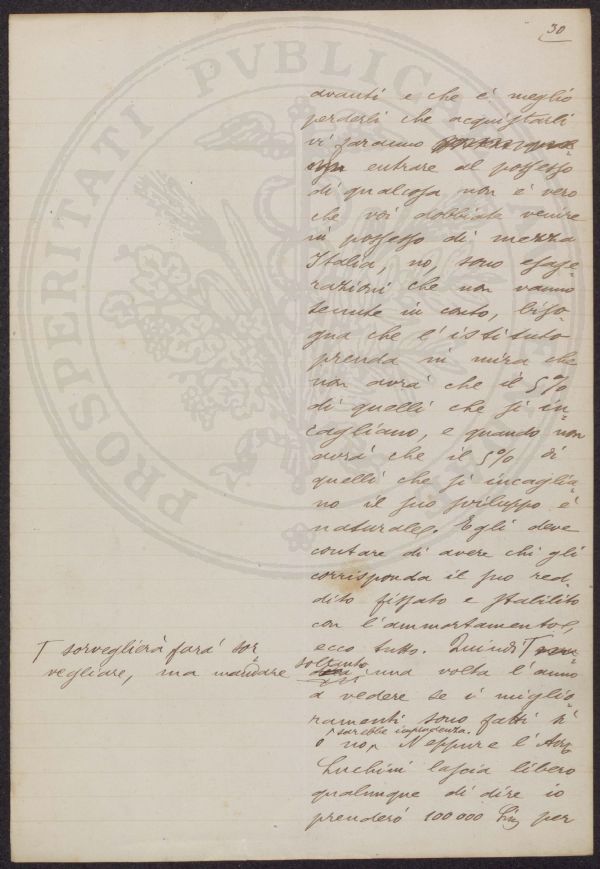 30
avanti e che è meglio
perderli che acquistarli
vi faranno
entrare al possesso
di qualcosa non è vero
che voi dobbiate venire
in possesso di mezza
Italia, no, sono esage=
razioni che non vanno
tenute in conto, biso=
gna che l'istituto
prenda in mira che
non avrà che il 5%
di quelli che si in=
cagliano, e quando non
avrà che il 5% di
quelli che si incaglia=
no il suo sviluppo è
naturale. Egli deve
contare di avere chi gli
corrisponda il suo red=
dito fissato e stabilito
con l'ammortamento,
ecco tutto. Quindi T
T sorveglierà farà sor=
vegliare, ma mandare soltanto
una volta l'anno
a vedere se i miglio=
ramenti sono fatti sì
o no, sarebbe imprudenza. Neppure l'Avv
Luchini lascia libero
qualunque di dire io
prenderò 100000 Lire per
PROSPERITATI PVBLICAE